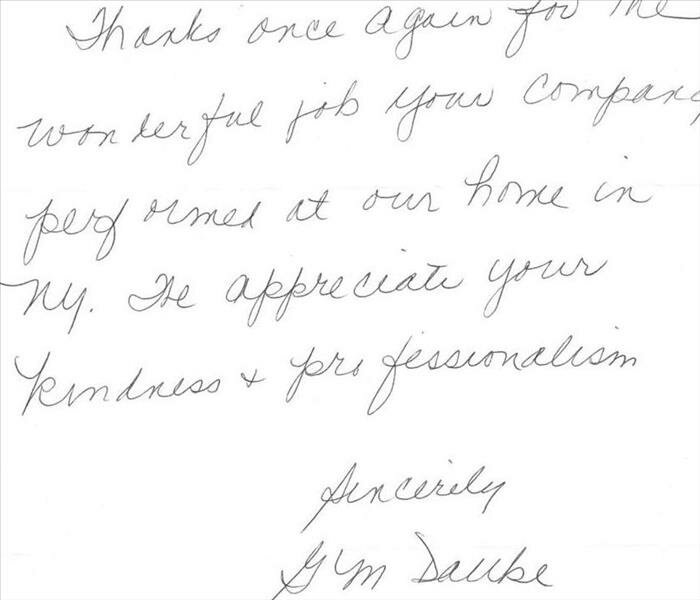 Thanks once again for the
wonderful job your company
performed at our home in
NY. We appreciate your
kindness + professionalism
Sincerely